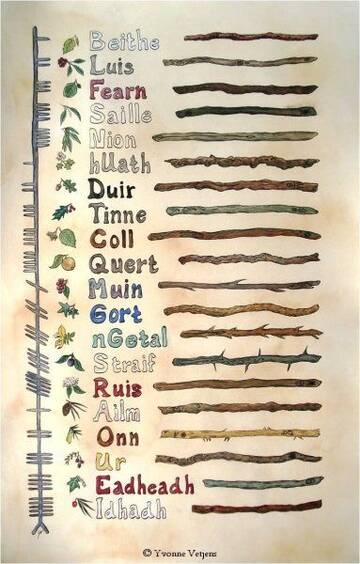 Beithe
Luis
Fearn
Saille
Nion
hUath
Duir
Tinne
Coll
Quert
Muin
Gort
nGetal
Straif
Ruis
Ailm
Onn
Ur
Eadheadh
Idhadh
© Yvonne Vetjens